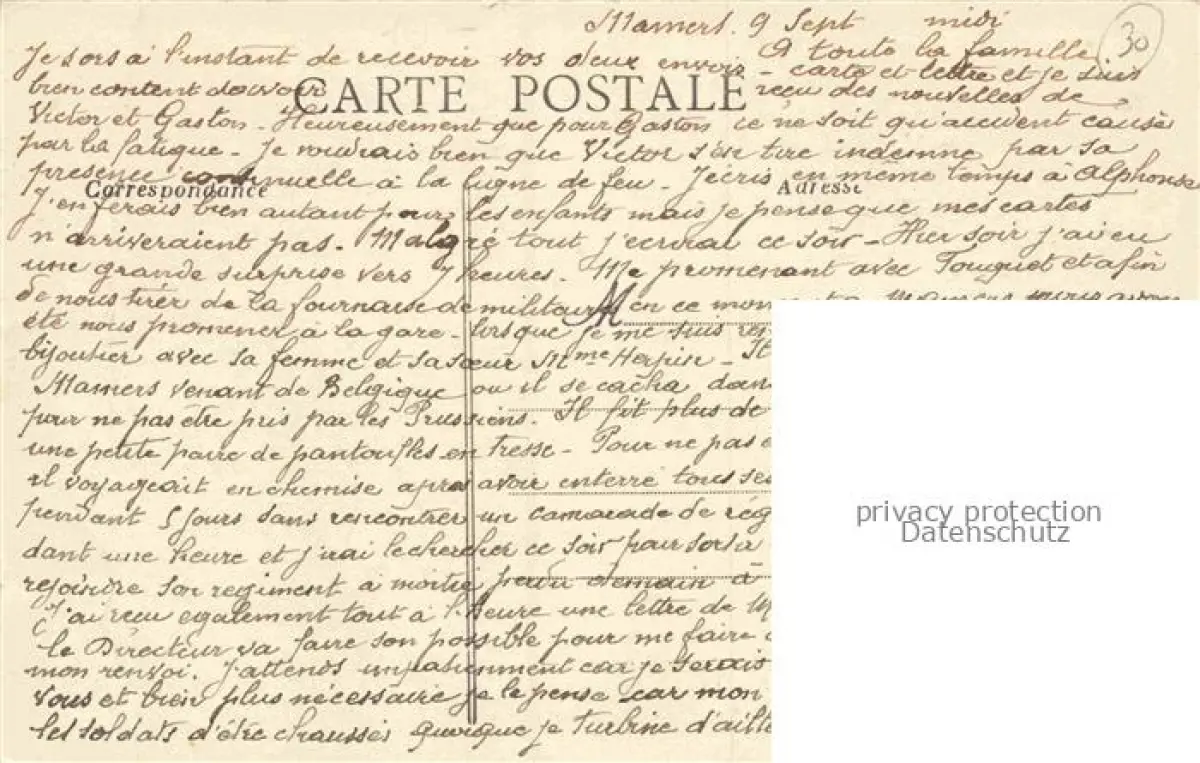 Mamers. 9 Sept midi
30
A toute la famille
Je sors à l'instant de recevoir vos deux envois - carte et lettre et je suis
bien content d'avoir reçu des nouvelles de
CARTE POSTALE
Victor et Gaston - Heureusement que pour Gaston ce ne soit qu'accident causé
par la fatigue - Je voudrais bien que Victor s'en tire indemne par sa
présence continuelle à la ligne de feu - J'écris en même temps à Alphonse
Correspondance
Adresse
J'en ferais bien autant pour les enfants mais je pense que mes cartes
n'arriveraient pas. Malgré tout j'écrirai ce soir - Hier soir j'ai eu
une grande surprise vers 7 heures. Me promenant avec Touquet et afin
de nous tirer de la fournaise de militaires en ce moment à Mamers nous avons
M
été nous promener à la gare - lorsque je me suis
bijoutier avec sa femme et sa sœur Mme Herpin -
Mamers venant de Belgique ou il se cacha dans
pour ne pas être pris par les Prussiens. Il fit plus de
une petite paire de pantoufles en tresse - Pour ne pas
il voyageait en chemise après avoir enterré tous ses
privacy protection
Datenschutz
pendant 5 jours sans rencontrer un camarade de
dant une heure et j'irai le chercher ce soir pour
rejoindre son regiment à moitié perdu demain à
J'ai reçu également tout à l'heure une lettre de
le Directeur va faire son possible pour me faire
mon renvoi. J'attends impatiemment car je serais
vous et bien plus nécessaire je le pense car mon
les soldats d'être chaussés quoique je turbine